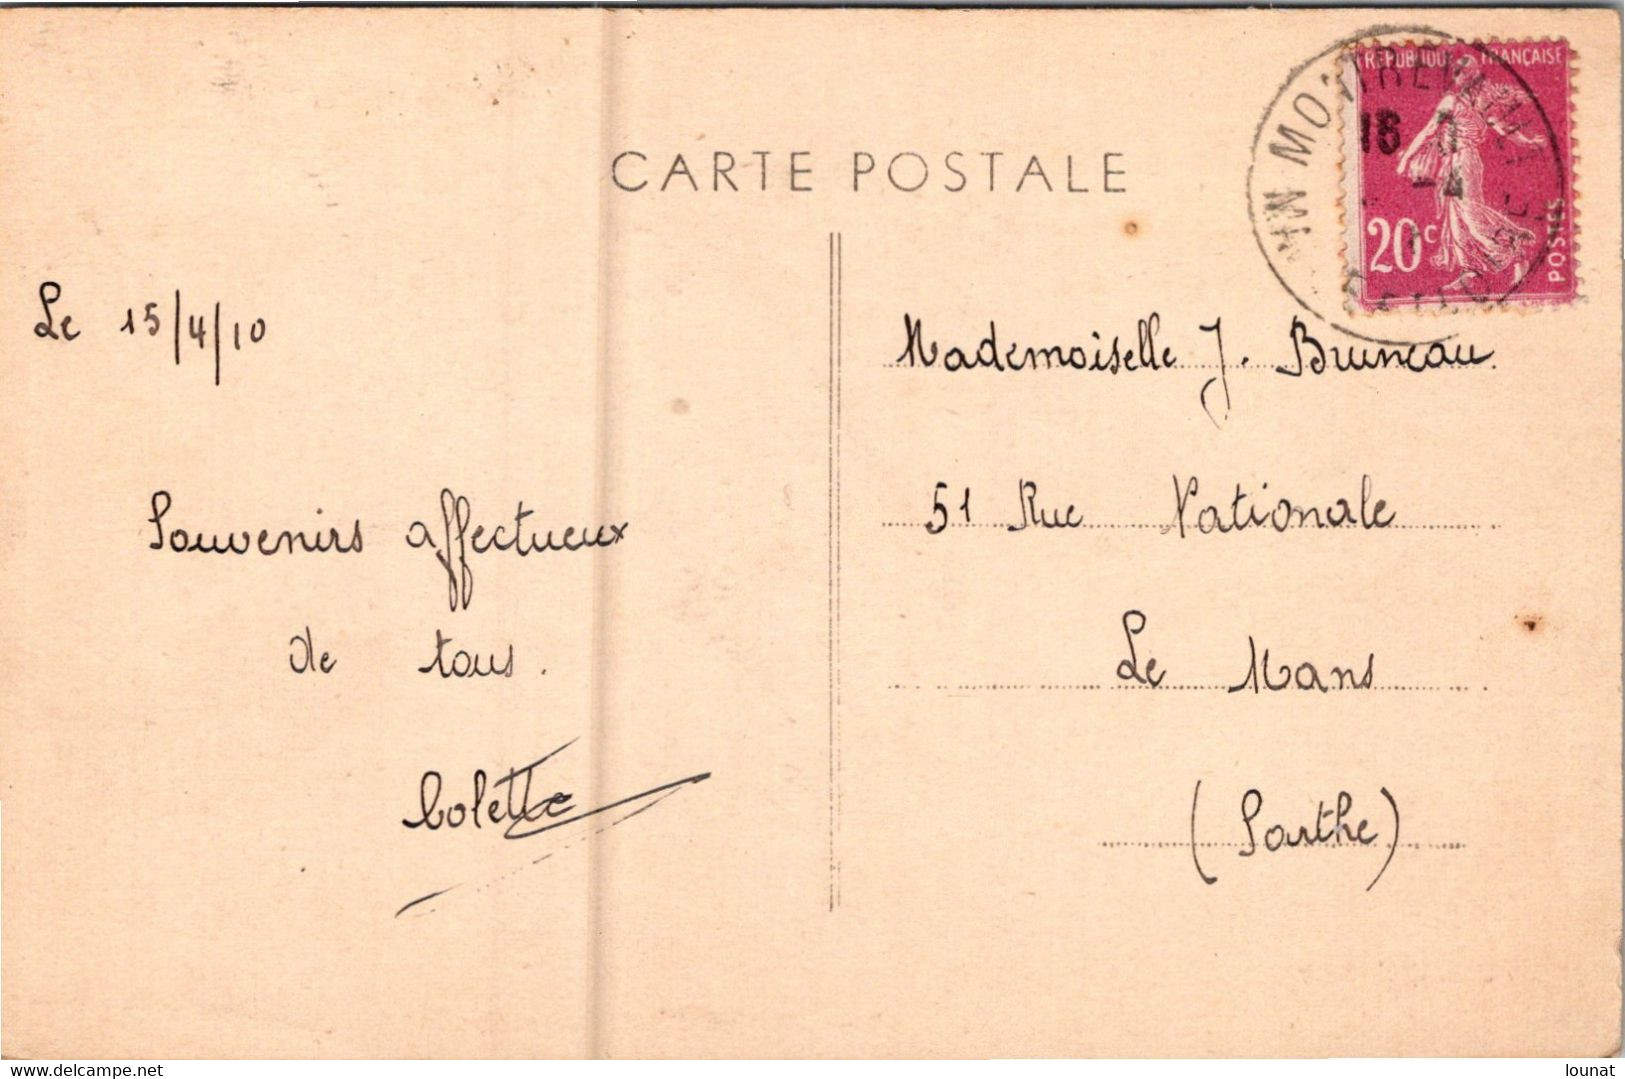 CARTE POSTALE
RÉPUBLIQUE FRANÇAISE
20c
POSTES
Le 15/4/10
Souvenirs affectueux
de tous.
Colette
Mademoiselle J. Bruneau.
51 Rue Nationale
Le Mans
(Sarthe)
www.delcampe.net
lounat